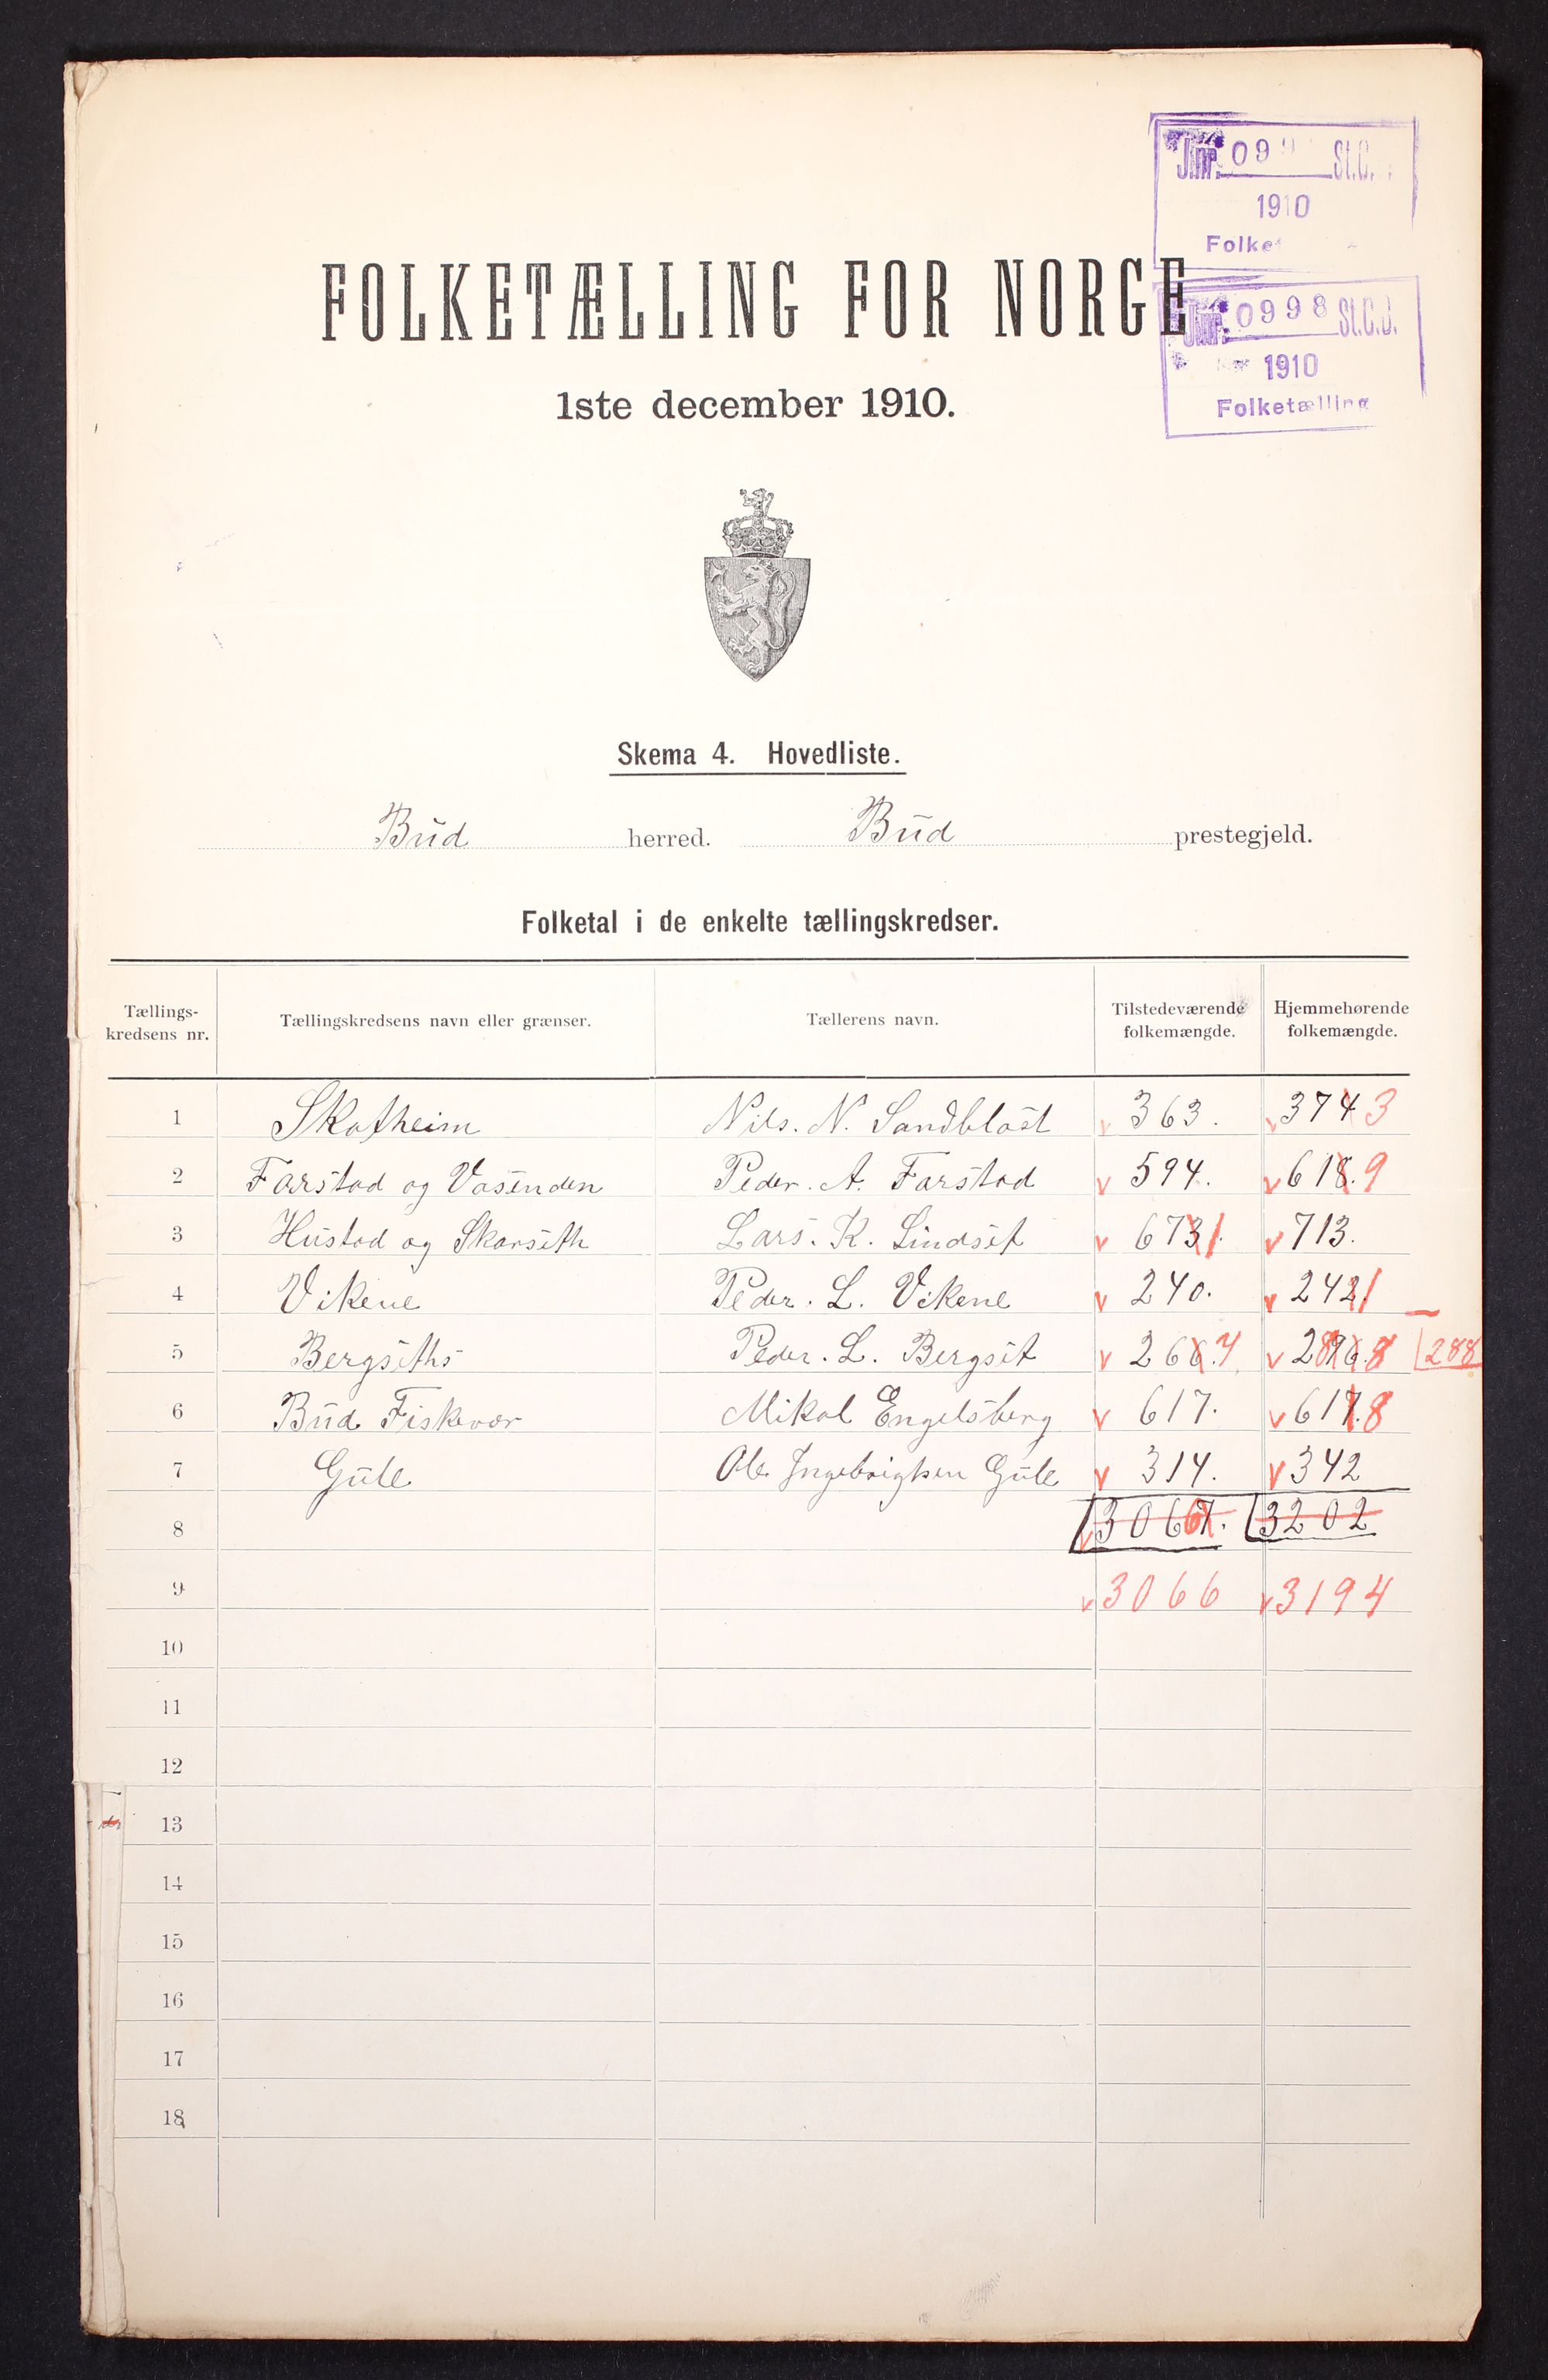 Jnr. 099 St.C.
1910
Folke
FOLKETÆLLING FOR NORGE
Jnr. 0998 St.C.B.
1910
Folketælling
1ste december 1910.
Skema 4. Hovedliste.
Bud herred. Bud prestegjeld.
Folketal i de enkelte tællingskredser.
Tællings-kredsens nr. Tællingskredsens navn eller grænser. Tællerens navn. Tilstedeværende folkemængde. Hjemmehørende folkemængde.
1 Skotheim Nils. N. Sandblåst 363. 374 3
2 Farstad og Vasenden Peder. A. Farstad 594. 618. 9
3 Hustad og Skarseth Lars. K. Lindset 673 1. 713.
4 Vikene Peder. L. Vikene 240. 242. 1
5 Bergseths Peder. L. Bergset 266. 7 296. 88 288
6 Bud Fiskevær Mikal Engelsberg 617. 617. 8
7 Gule Ole Ingebrigtsen Gule 314. 342
8 3067. 6 3202
9 3066 3194
10
11
12
13
14
15
16
17
18